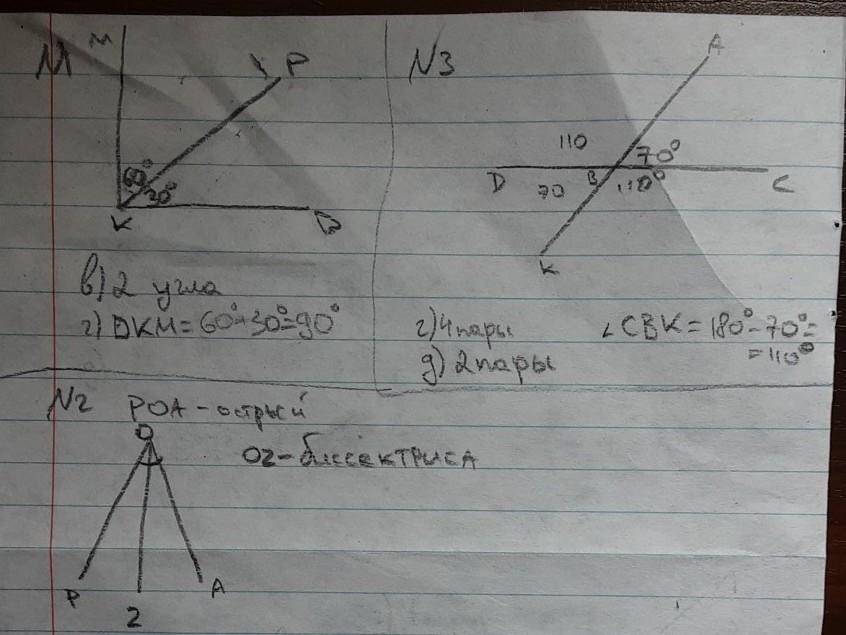 N1
M
P
60°
30°
K
D
в) 2 угла
г) DKM = 60°+30°=90°
N3
A
110
70°
D
B
C
70
110°
K
г) 4 пары
∠CBK = 180°-70°=
=110°
д) 2 пары
N2 POA - острый
O
OZ - биссектриса
P
Z
A